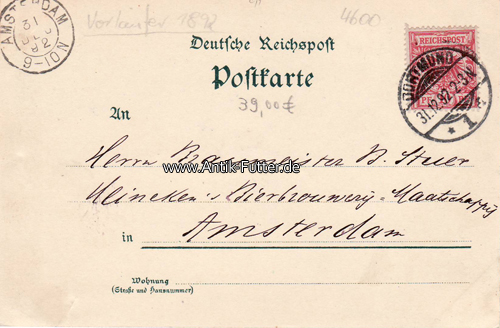 AMSTERDAM
31
92
9-10N
Vorläufer 1892
4600
Deutsche Reichspost
Postkarte
39,00€
REICHSPOST
DORTMUND
31.12.92.2-3N
* 1 *
An
Herrn Braumeister B. Steuer
www.Antik-Futter.de
Heineken's Bierbrouwerij-Maatschappij
in Amsterdam
Wohnung
(Straße und Hausnummer)